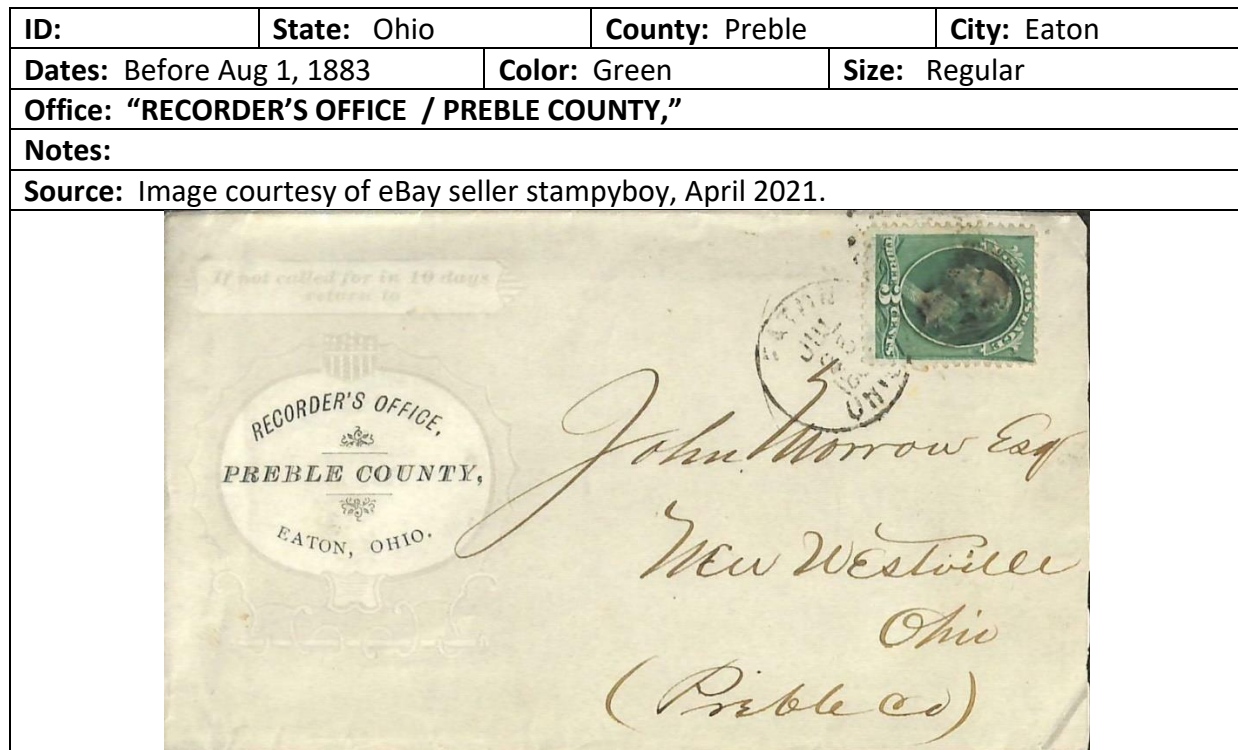 ID: State: Ohio County: Preble City: Eaton
Dates: Before Aug 1, 1883 Color: Green Size: Regular
Office: “RECORDER’S OFFICE / PREBLE COUNTY,”
Notes:
Source: Image courtesy of eBay seller stampyboy, April 2021.
If not called for in 10 days
return to
RECORDER'S OFFICE,
PREBLE COUNTY,
EATON, OHIO.
EATON
JUL
OHIO
U.S. POSTAGE
THREE 3 CENTS
John Morrow Esq
New Westville
Ohio
(Preble Co)